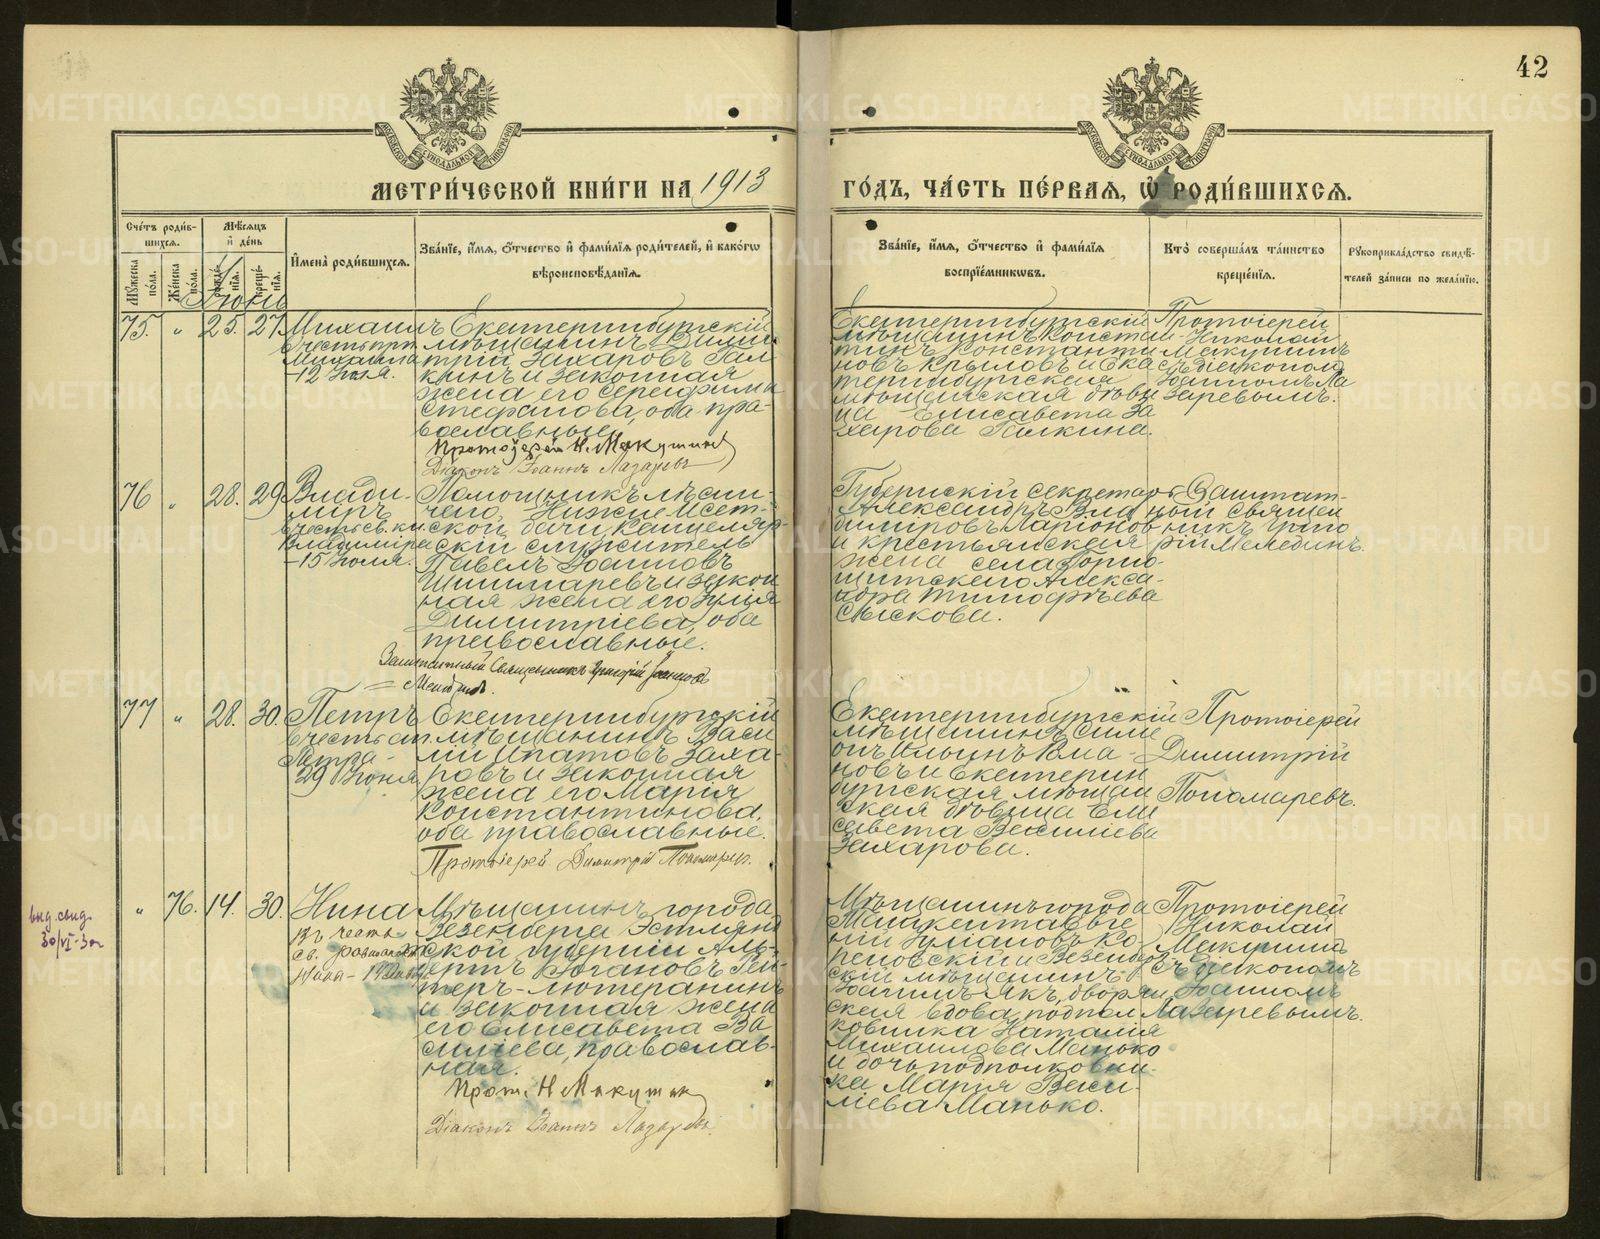 42
МЕТРИ́ЧЕСКОЙ КНИ́ГИ НА 1913 ГО́ДЪ, ЧА́СТЬ ПЕ́РВАЯ, Ѡ҆ РОДИ́ВШИХСЯ.
Сче́тъ роди́в-
шихся.
Мꙋжеска по́ла.
Же́нска по́ла.
Мѣ́сяцъ
и҆ де́нь
рожде́нїя.
креще́нїя.
Іюнь
И҆мена̀ роди́вшихся.
Зва́нїе, и҆́мя, ѻ҆́тчество и҆ фами́лїя роди́телей, и҆ како́гѡ
вѣроисповѣ́данїя.
Зва́нїе, и҆́мя, ѻ҆́тчество и҆ фами́лїя
воспрїе́мникѡвъ.
Кто̀ соверша́лъ та́инство
креще́нїя.
Рꙋкоприкла́дство свидѣ́-
телей за́писи по жела́нїю.
75. " 25. 27.
Михаилъ
въ честь прп.
Михаила
-12 Іюля.
Екатеринбургскій
мѣщанинъ Дими-
трій Захаровъ Гал-
кинъ и законная
жена его Серафима
Стефанова, оба пра-
вославные.
Протоіерей Н. Макушинъ
Діаконъ Іоаннъ Лазаревъ
Екатеринбургскій
мѣщанинъ Констан
тинъ Константи
новъ Крыловъ и Ека
теринбургская
мѣщанская дѣви
ца Елисавета За
харова Галкина.
Протоіерей
Николай
Макушинъ
съ діакономъ
Іоанномъ Ла
заревымъ.
76 " 28. 29
Влади-
миръ
въ честь св. кн.
Владиміра
-15 Іюля.
Помощникъ лѣсни-
чего, Нижне Исет-
ской дачи, канцеляр-
скій служитель
Павелъ Іоанновъ
Шишмаревъ и закон
ная жена его Юлія
Димитріева, оба
православные.
Заштатный Священникъ Григорій Іоанновъ
Мелединъ.
Губернскій секретарь
Александръ Вла
диміровъ Ларіонов
и крестьянская
жена села Горно-
щитскаго Алекса-
ндра Тимофѣева
Сыскова.
Заштат-
ный Священ
никъ Григо
рій Мелединъ.
77 " 28. 30.
Петръ
въ честь ап.
Петра-
29 Іюня
Екатеринбургскій
мѣщанинъ Васи
лій Ипатовъ Заха-
ровъ и законная
жена его Марія
Константинова,
оба православные.
Протоіерей Димитрій Пономаревъ.
Екатеринбургскій
мѣщанинъ Симе
онъ Ильинъ Ива-
новъ и Екатерин
бургская мѣщан
ская дѣвица Ели
савета Василіева
Захарова.
Протоіерей
Димитрій
Пономаревъ.
выд. свид.
30/VI-30г
" 76. 14. 30.
Нина
Въ честь
св. равноап.
Нины -
Мѣщанинъ города
Везенберга Эстлянд
ской губерніи Аль-
бертъ Югановъ Рей-
теръ-лютеранинъ
и законная жена
его Елисавета Ва
силіева, православ-
ная.
Прот. Н Макушин
Діаконъ Іоаннъ Лазаревъ.
Мѣщанинъ города
нскій мѣщанинъ
Іоакимъ Якъ, дворян
ская вдова, подпол
ковника Наталія
Михаилова Манько
и дочь подполковни-
ка Марія Васи-
ліева Манько.
Протоіерей
Николай
Макушинъ
съ діакономъ
Іоанномъ
Лазаревымъ.
METRIKI.GASO-URAL.RU